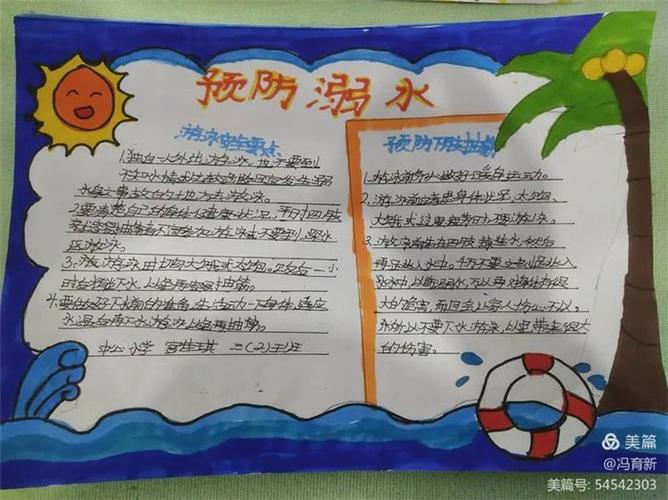 预防溺水
游泳安全要点
1.独自一人外出游泳,也不要到
不知水情或比较危险且易发生溺
水身亡事故的地方去游泳。
2.要清楚自己的身体健康状况,平时四肢
就容易抽筋者不宜参加游泳或不要到深水
区游泳。
3.游泳时切勿太饿或太饱。饭后一小
时才能下水,以免抽筋。
4.要做好下水前的准备,先活动一下身体,
水温后再下水游泳以免抽筋。
中心小学 二(2)班
预防下肢抽筋
1.游泳前务必做好暖身运动。
2.游泳前应考虑身体状况,太饱、
太饿或过度疲劳时不要游泳。
3.游泳前先在四肢撩些水,然后
再跃入水中。
水中,以防
大的危害,而且会让家人伤心不以,
以不要下水游泳,以免带来很大
的伤害。
美篇
@冯育新
美篇号: 54542303